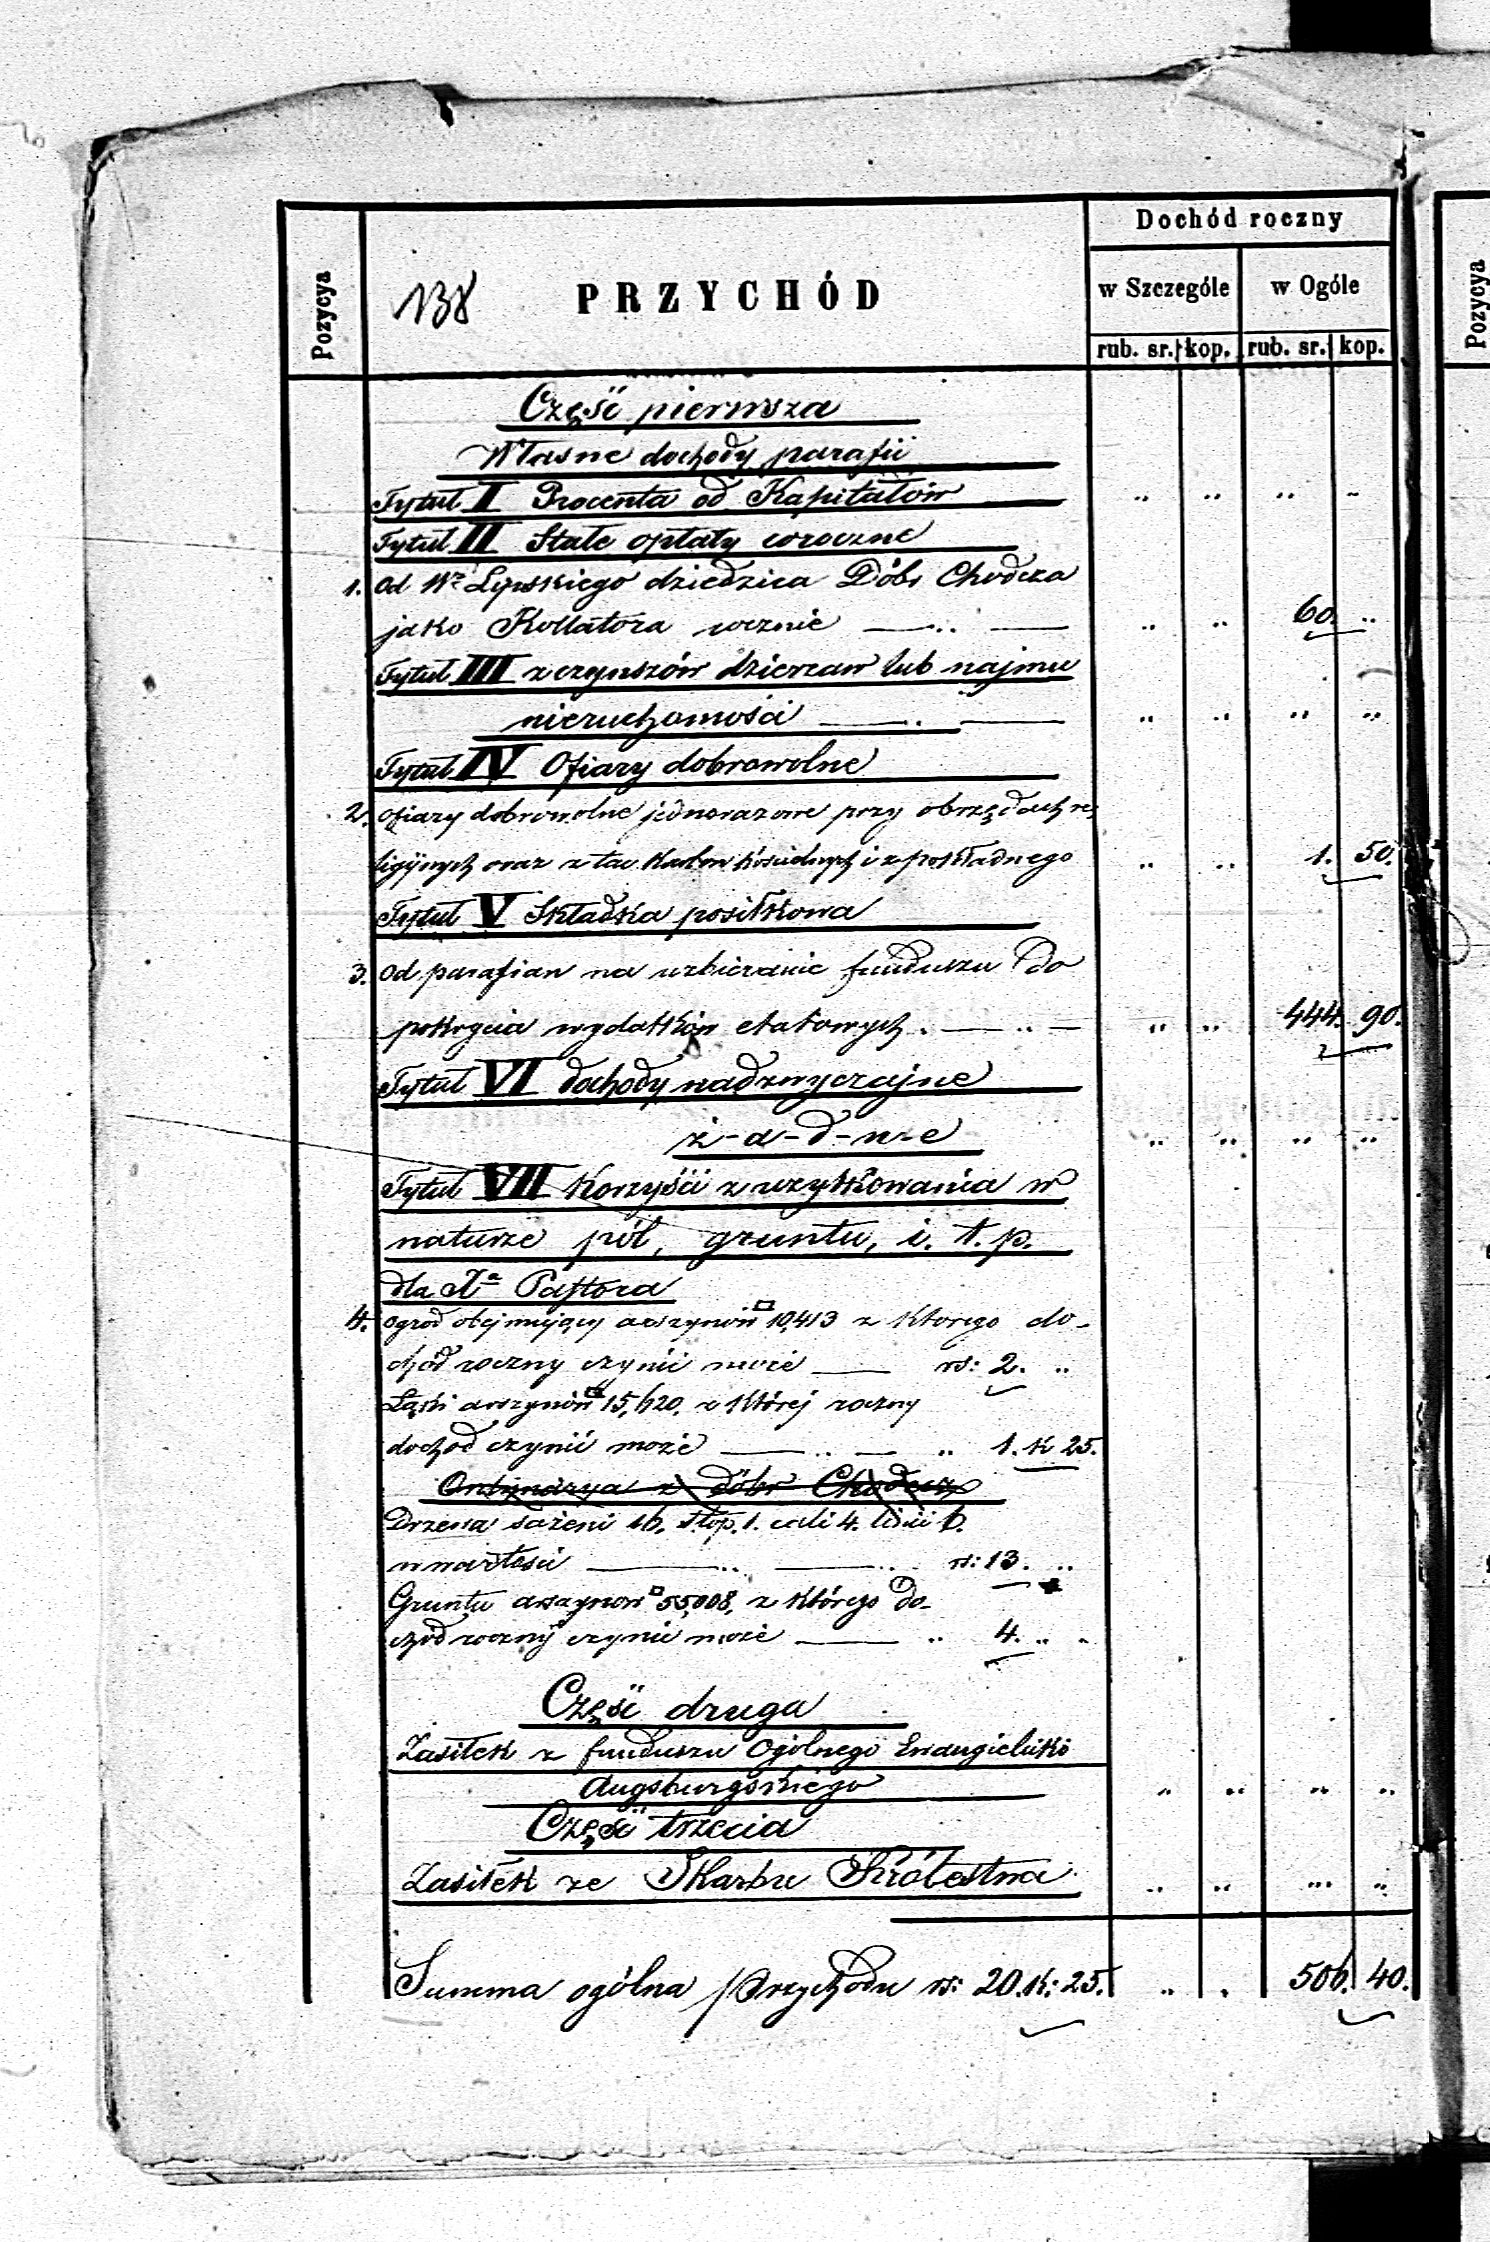 Dochód roczny
Pozycya
138
PRZYCHÓD
w Szczególe
w Ogóle
Pozycya
rub. sr. kop. rub. sr. kop.
Część pierwsza
Własne dochody parafii
Tytuł I Procenta od Kapitałów „ „ „ „
Tytuł II Stałe opłaty coroczne
1. Od Wo Lipskiego dziedzica Dóbr Chodcza
jako Kollatora rocznie „ „ 60. „
Tytuł III z czynszów dzierzaw lub najmu
nieruchomości „ „ „ „
Tytuł IV Ofiary dobrowolne
2. Ofiary dobrowolne jednorazowe przy obrzędach re-
ligijnych oraz z tac Karbon kościelnych i z pokładnego „ „ 1. 50.
Tytuł V Składka posiłkowa
3. Od parafian na uzbieranie funduszu do
pokrycia wydatków etatowych „ „ 444. 90.
Tytuł VI dochody nadzwyczajne
ż-a-d-n-e „ „ „ „
Tytuł VII Korzyści z uzytkowania w
naturze pól, gruntu, i. t. p.
dla Xa Pastora
4. Ogród obejmujący arszynów □ 10,413 z ktorego do-
chód roczny czynić może rs: 2. „
Łąki arszynów □ 15,620, z której roczny
dochod czynić może „ 1. k 25.
Ordynarya z dóbr Chodecz
Drzewa sażeni 16. stop. 1. cali 4. linii 6.
w wartości rs: 13. „
Gruntu arszynow □ 55,008, z którego do-
chód roczny czynić może „ 4. „
Część druga
Zasiłek z funduszu Ogólnego Ewangielicko
Augsburgskiego „ „ „ „
Część trzecia
Zasiłek ze Skarbu Królestwa „ „ „ „
Summa ogólna Przychodu rs: 20. k: 25. „ „ 506. 40.